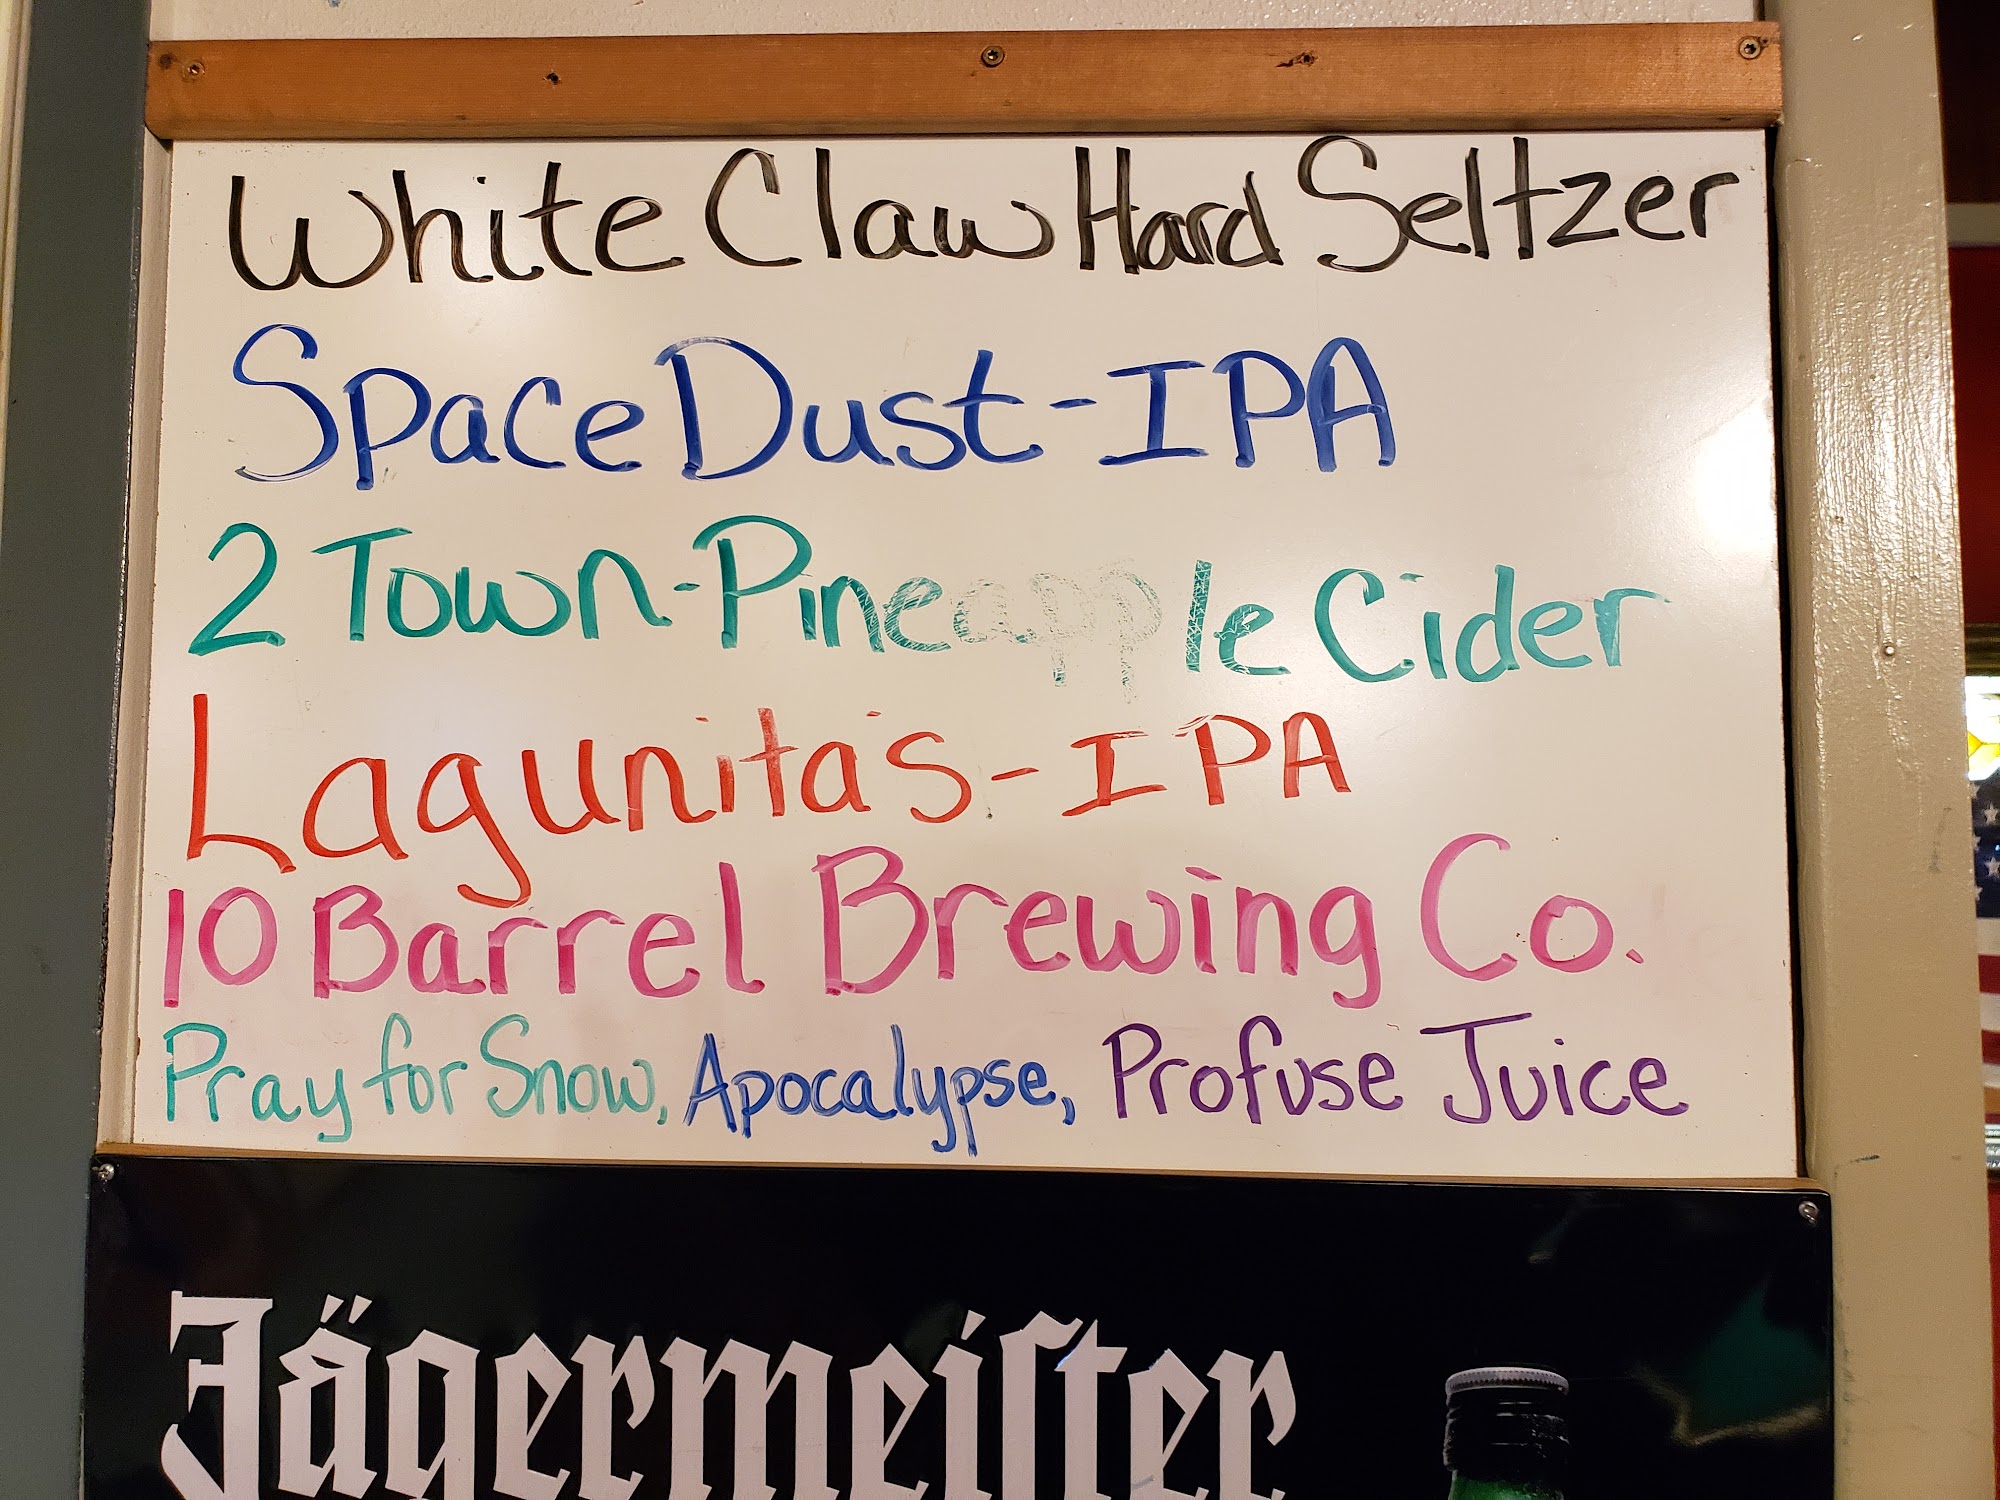 White Claw Hard Seltzer
Space Dust-IPA
2 Town-Pineapple Cider
Lagunita's-IPA
10 Barrel Brewing Co.
Pray for Snow, Apocalypse, Profuse Juice
Jägermeiſter